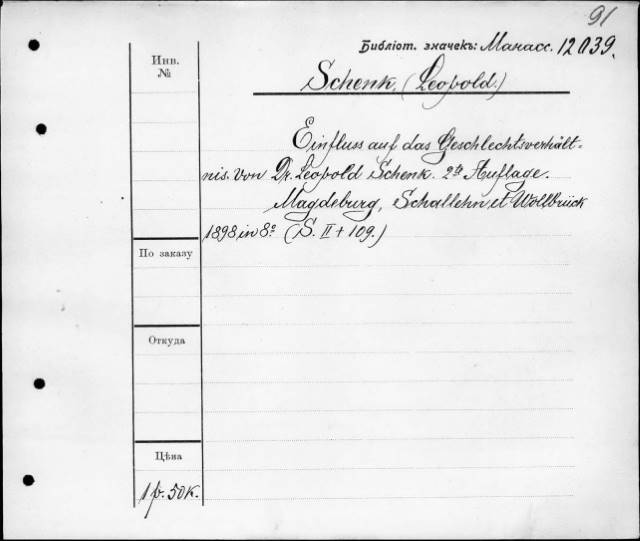 91
Библіот. значекъ: Манасс. 12039.
Инв.
№
Schenk, (Leopold.)
Einfluss auf das Geschlechtsverhält=
nis. von Dr. Leopold Schenk. 2te Auflage.
Magdeburg, Schallehn et Wollbrück
1898, in 8º (S. II + 109.)
По заказу
Откуда
Цѣна
1 р. 50 к.